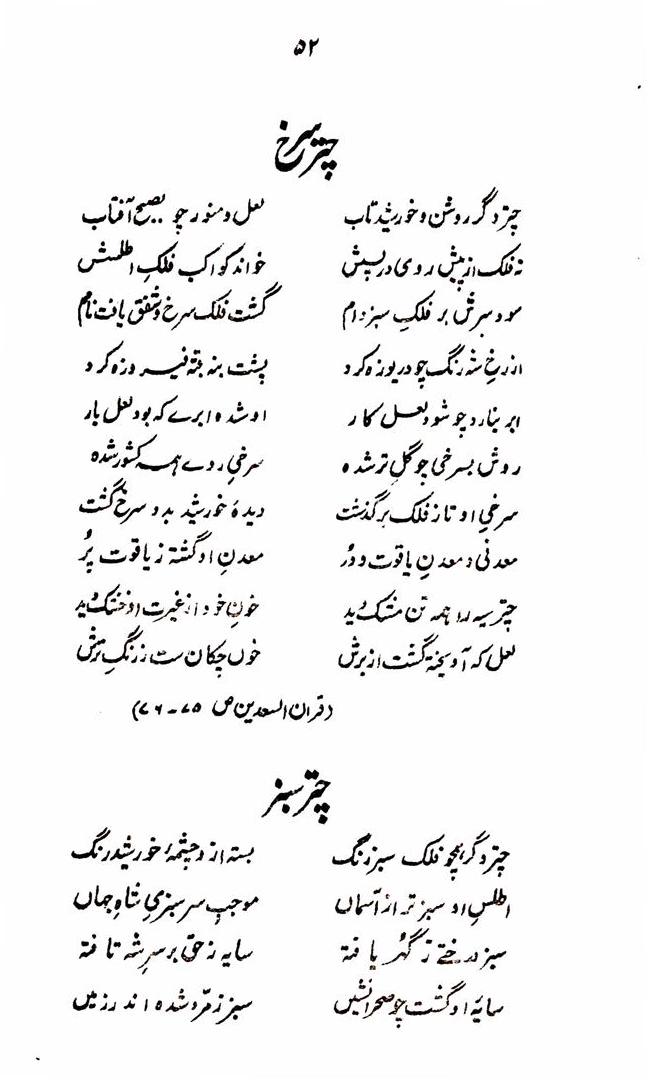 ۵۲
چتر سرخ
چتر دگر روشن و خورشید تاب لعل و منور چو بصبح آفتاب
نہ فلک از پیش روی در پسش خواند کواکب فلکِ اطلسش
سود سرش بر فلکِ سبز دام گشت فلک سرخ و شفق یافت نام
از رخِ شہ رنگ چو دریوزہ کرد پشت بنفشہ فیروزہ کرد
ابر ببارد چو شود لعل کار او شدہ ابرے کہ بود لعل بار
روش بسرخی چو گلِ تر شدہ سرخیِ روے ہمہ کشور شدہ
سرخیِ او تا ز فلک برگذشت دیدۂ خورشید بدو سرخ گشت
معدنی و معدنِ یاقوت و دُر معدنِ او گشتہ ز یاقوت پُر
چتر سیہ را ہمہ تن مشک دید خونِ خود از غیرت او خشک دید
لعل کہ آویختہ گشت از برش خوں چکان ست ز رنگِ
(قران السعدین ص ۷۵-۷۶)
چتر سبز
چتر دگر ہمچو فلک سبز رنگ بستہ از و چشمۂ خورشید رنگ
اطلسِ او سبز تر از آسماں موجبِ سرسبزیِ شاہِ جہاں
سبز درختے ز گہر یافتہ سایہ ز حق بر سرِ شہ تافتہ
سایۂ او گشت چو صحرا نشیں سبز زمرد شدہ اندر زمیں